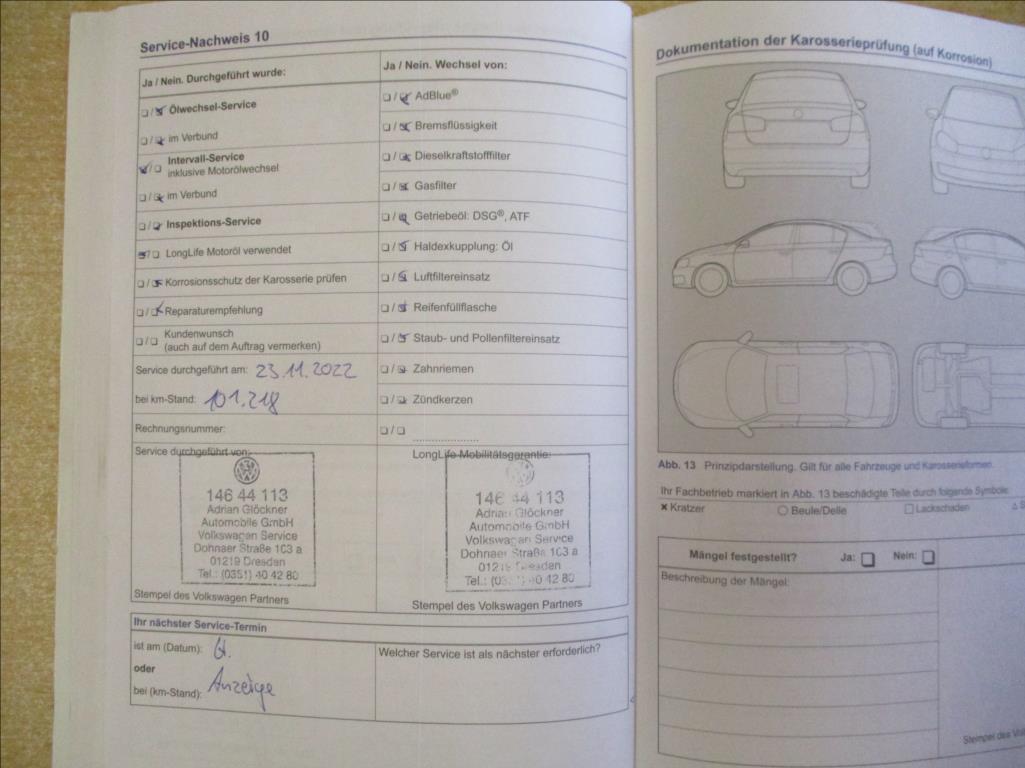 Service-Nachweis 10
Ja / Nein. Durchgeführt wurde:
❏ / ❏ Ölwechsel-Service
❏ / ❏ im Verbund
❏ / ❏ Intervall-Service
inklusive Motorölwechsel
❏ / ❏ im Verbund
❏ / ❏ Inspektions-Service
❏ / ❏ LongLife Motoröl verwendet
❏ / ❏ Korrosionsschutz der Karosserie prüfen
❏ / ❏ Reparaturempfehlung
❏ / ❏ Kundenwunsch
(auch auf dem Auftrag vermerken)
Service durchgeführt am: 23.11.2022
bei km-Stand: 101.218
Rechnungsnummer:
Service durchgeführt von:
146 44 113
Adrian Glöckner
Automobile GmbH
Volkswagen Service
Dohnaer Straße 103 a
01219 Dresden
Tel.: (0351) 40 42 80
Stempel des Volkswagen Partners
Ja / Nein. Wechsel von:
❏ / ❏ AdBlue®
❏ / ❏ Bremsflüssigkeit
❏ / ❏ Dieselkraftstofffilter
❏ / ❏ Gasfilter
❏ / ❏ Getriebeöl: DSG®, ATF
❏ / ❏ Haldexkupplung: Öl
❏ / ❏ Luftfiltereinsatz
❏ / ❏ Reifenfüllflasche
❏ / ❏ Staub- und Pollenfiltereinsatz
❏ / ❏ Zahnriemen
❏ / ❏ Zündkerzen
❏ / ❏ ....................
LongLife Mobilitätsgarantie:
146 44 113
Adrian Glöckner
Automobile GmbH
Volkswagen Service
Dohnaer Straße 103 a
01219 Dresden
Tel.: (0351) 40 42 80
Stempel des Volkswagen Partners
Ihr nächster Service-Termin
ist am (Datum): lt.
oder
bei (km-Stand): Anzeige
Welcher Service ist als nächster erforderlich?
Dokumentation der Karosserieprüfung (auf Korrosion)
Abb. 13 Prinzipdarstellung. Gilt für alle Fahrzeuge und Karosserieformen.
Ihr Fachbetrieb markiert in Abb. 13 beschädigte Teile durch folgende Symbole:
✖ Kratzer ○ Beule/Delle □ Lackschaden
Mängel festgestellt? Ja: ❏ Nein: ❏
Beschreibung der Mängel:
Stempel des